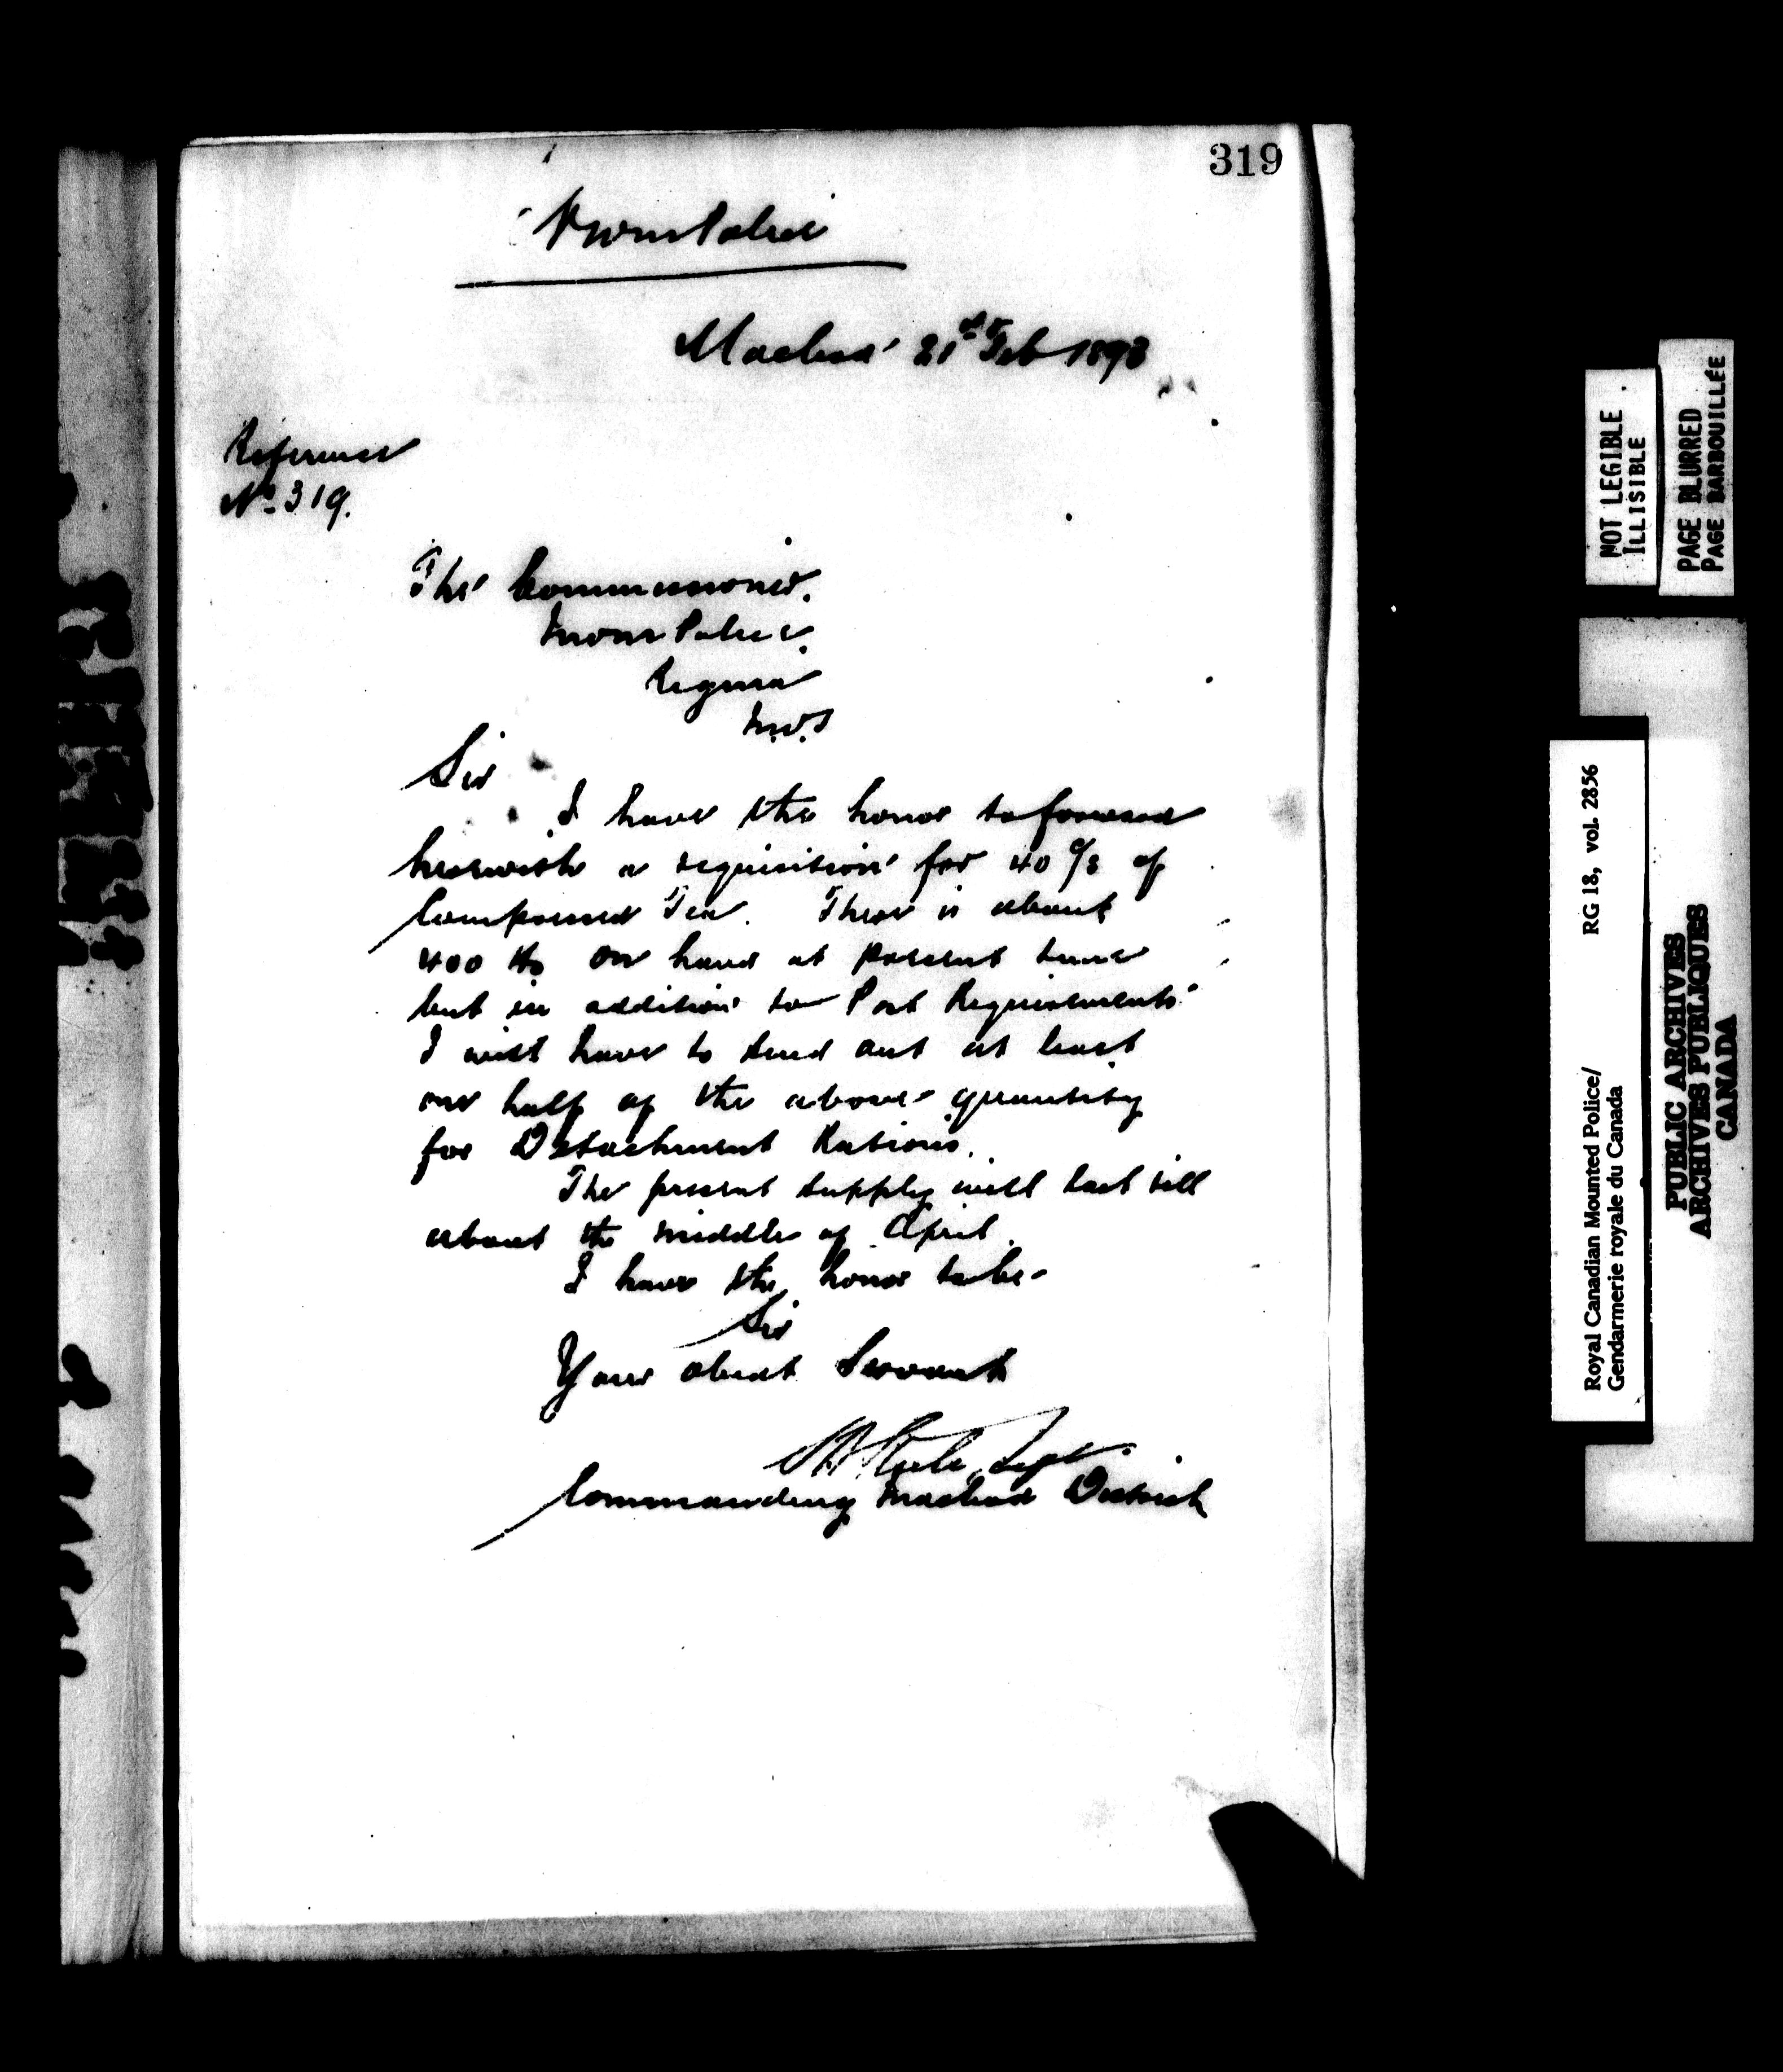 319
N W M Police
Macleod 21st Feb 1893
Reference
No 319.
The Commissioner.
N W M Police.
Regina
N.W.T
Sir
I have the honor to forward
herewith a requisition for 40 c/s of
Compressed Tea. There is about
400 lbs on hand at present time
but in addition to Post Requirements
I will have to send out at least
one half of the above quantity
for Detachment Rations.
The present supply will last till
about the middle of April.
I have the honor to be
Sir
Your obedt Servant
S B Steele, Supt
Commanding Macleod District
NOT LEGIBLE
ILLISIBLE
PAGE BLURRED
PAGE BARBOUILLÉE
Royal Canadian Mounted Police/ RG 18, vol. 2856
Gendarmerie royale du Canada
PUBLIC ARCHIVES
ARCHIVES PUBLIQUES
CANADA